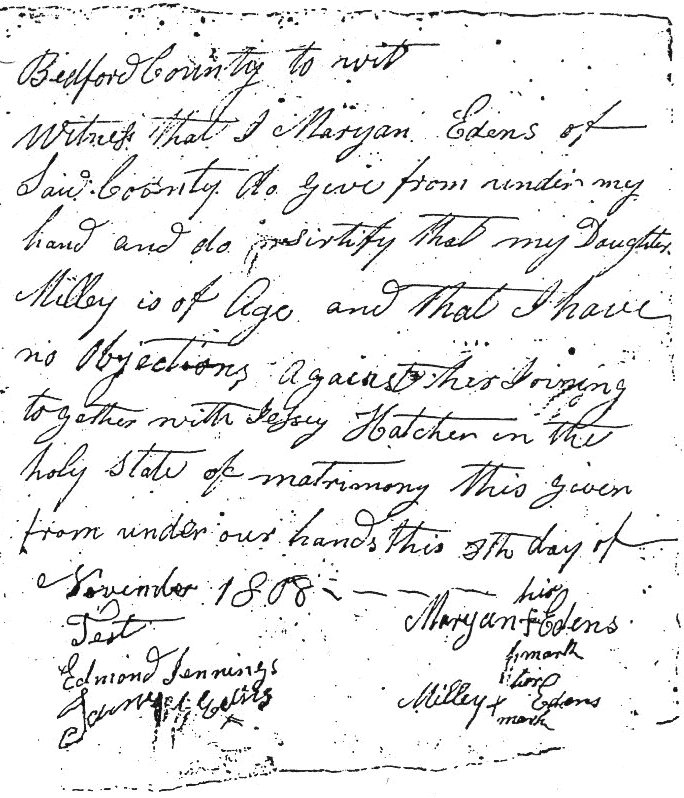 Bedford County to wit
Witness that I Maryan Edens of
Said County do give from under my
hand and do sirtify that my Daughter
Milley is of Age and that I have
no Objections Against her Joining
together with Jessey Hatcher in the
holy State of matrimony this given
from under our hands this 8th day of
November 1808
Test
her
Maryan + Edens
mark
Edmond Jennings
her
Milley x Edens
mark